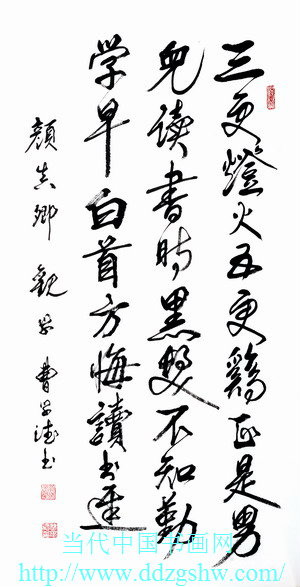 三更燈火五更鷄正是男
兒讀書時黑髮不知勤
学早白首方悔讀书遲
顔真卿 勸学 曹学书
当代中国书画网
http://www.ddzgshw.com/